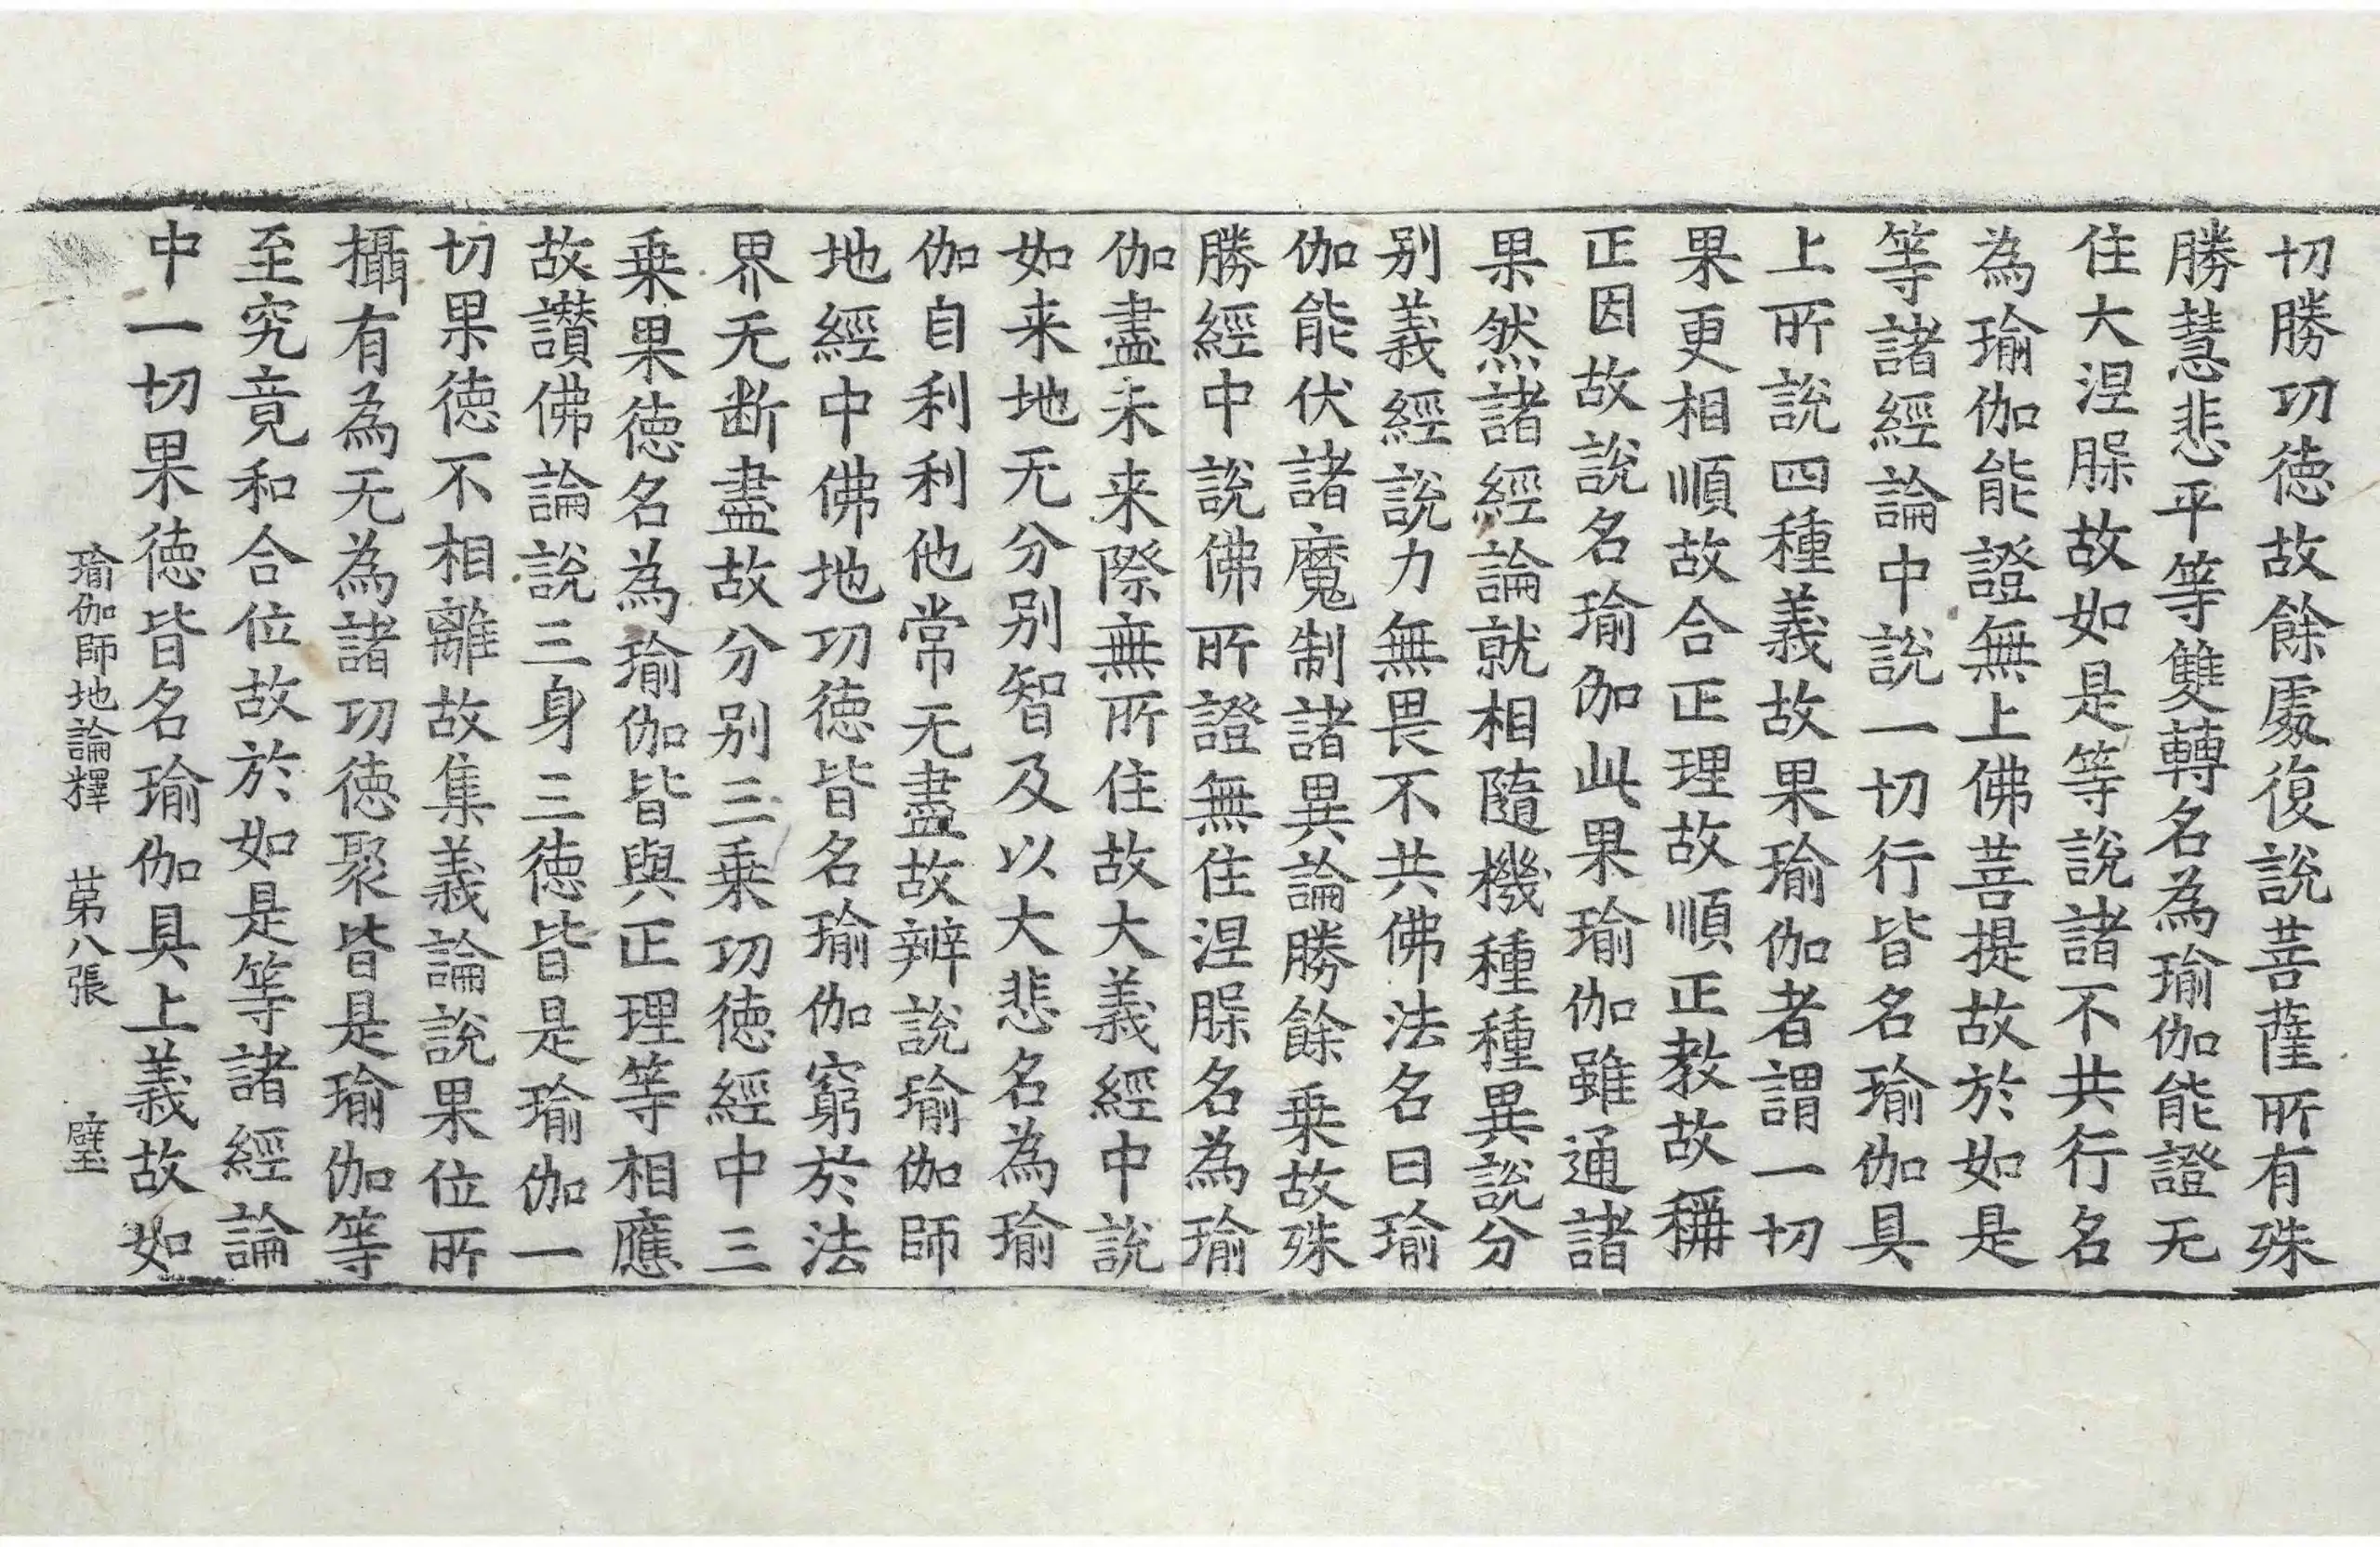 切勝功徳故餘處復說菩薩所有殊
勝慧悲平等雙轉名為瑜伽能證无
住大涅槃故如是等說諸不共行名
為瑜伽能證無上佛菩提故於如是
等諸經論中說一切行皆名瑜伽具
上所說四種義故果瑜伽者謂一切
果更相順故合正理故順正教故稱
正因故說名瑜伽此果瑜伽雖通諸
果然諸經論就相隨機種種異說分
别義經說力無畏不共佛法名曰瑜
伽能伏諸魔制諸異論勝餘乗故殊
勝經中說佛所證無住涅槃名為瑜
伽盡未来際無所住故大義經中說
如来地无分别智及以大悲名為瑜
伽自利利他常无盡故辨說瑜伽師
地經中佛地功徳皆名瑜伽窮於法
界无断盡故分别三乗功徳經中三
乗果徳名為瑜伽皆與正理等相應
故讚佛論說三身三徳皆是瑜伽一
切果徳不相離故集義論說果位所
攝有為无為諸功徳聚皆是瑜伽等
至究竟和合位故於如是等諸經論
中一切果徳皆名瑜伽具上義故如
瑜伽師地論釋 苐八張 璧